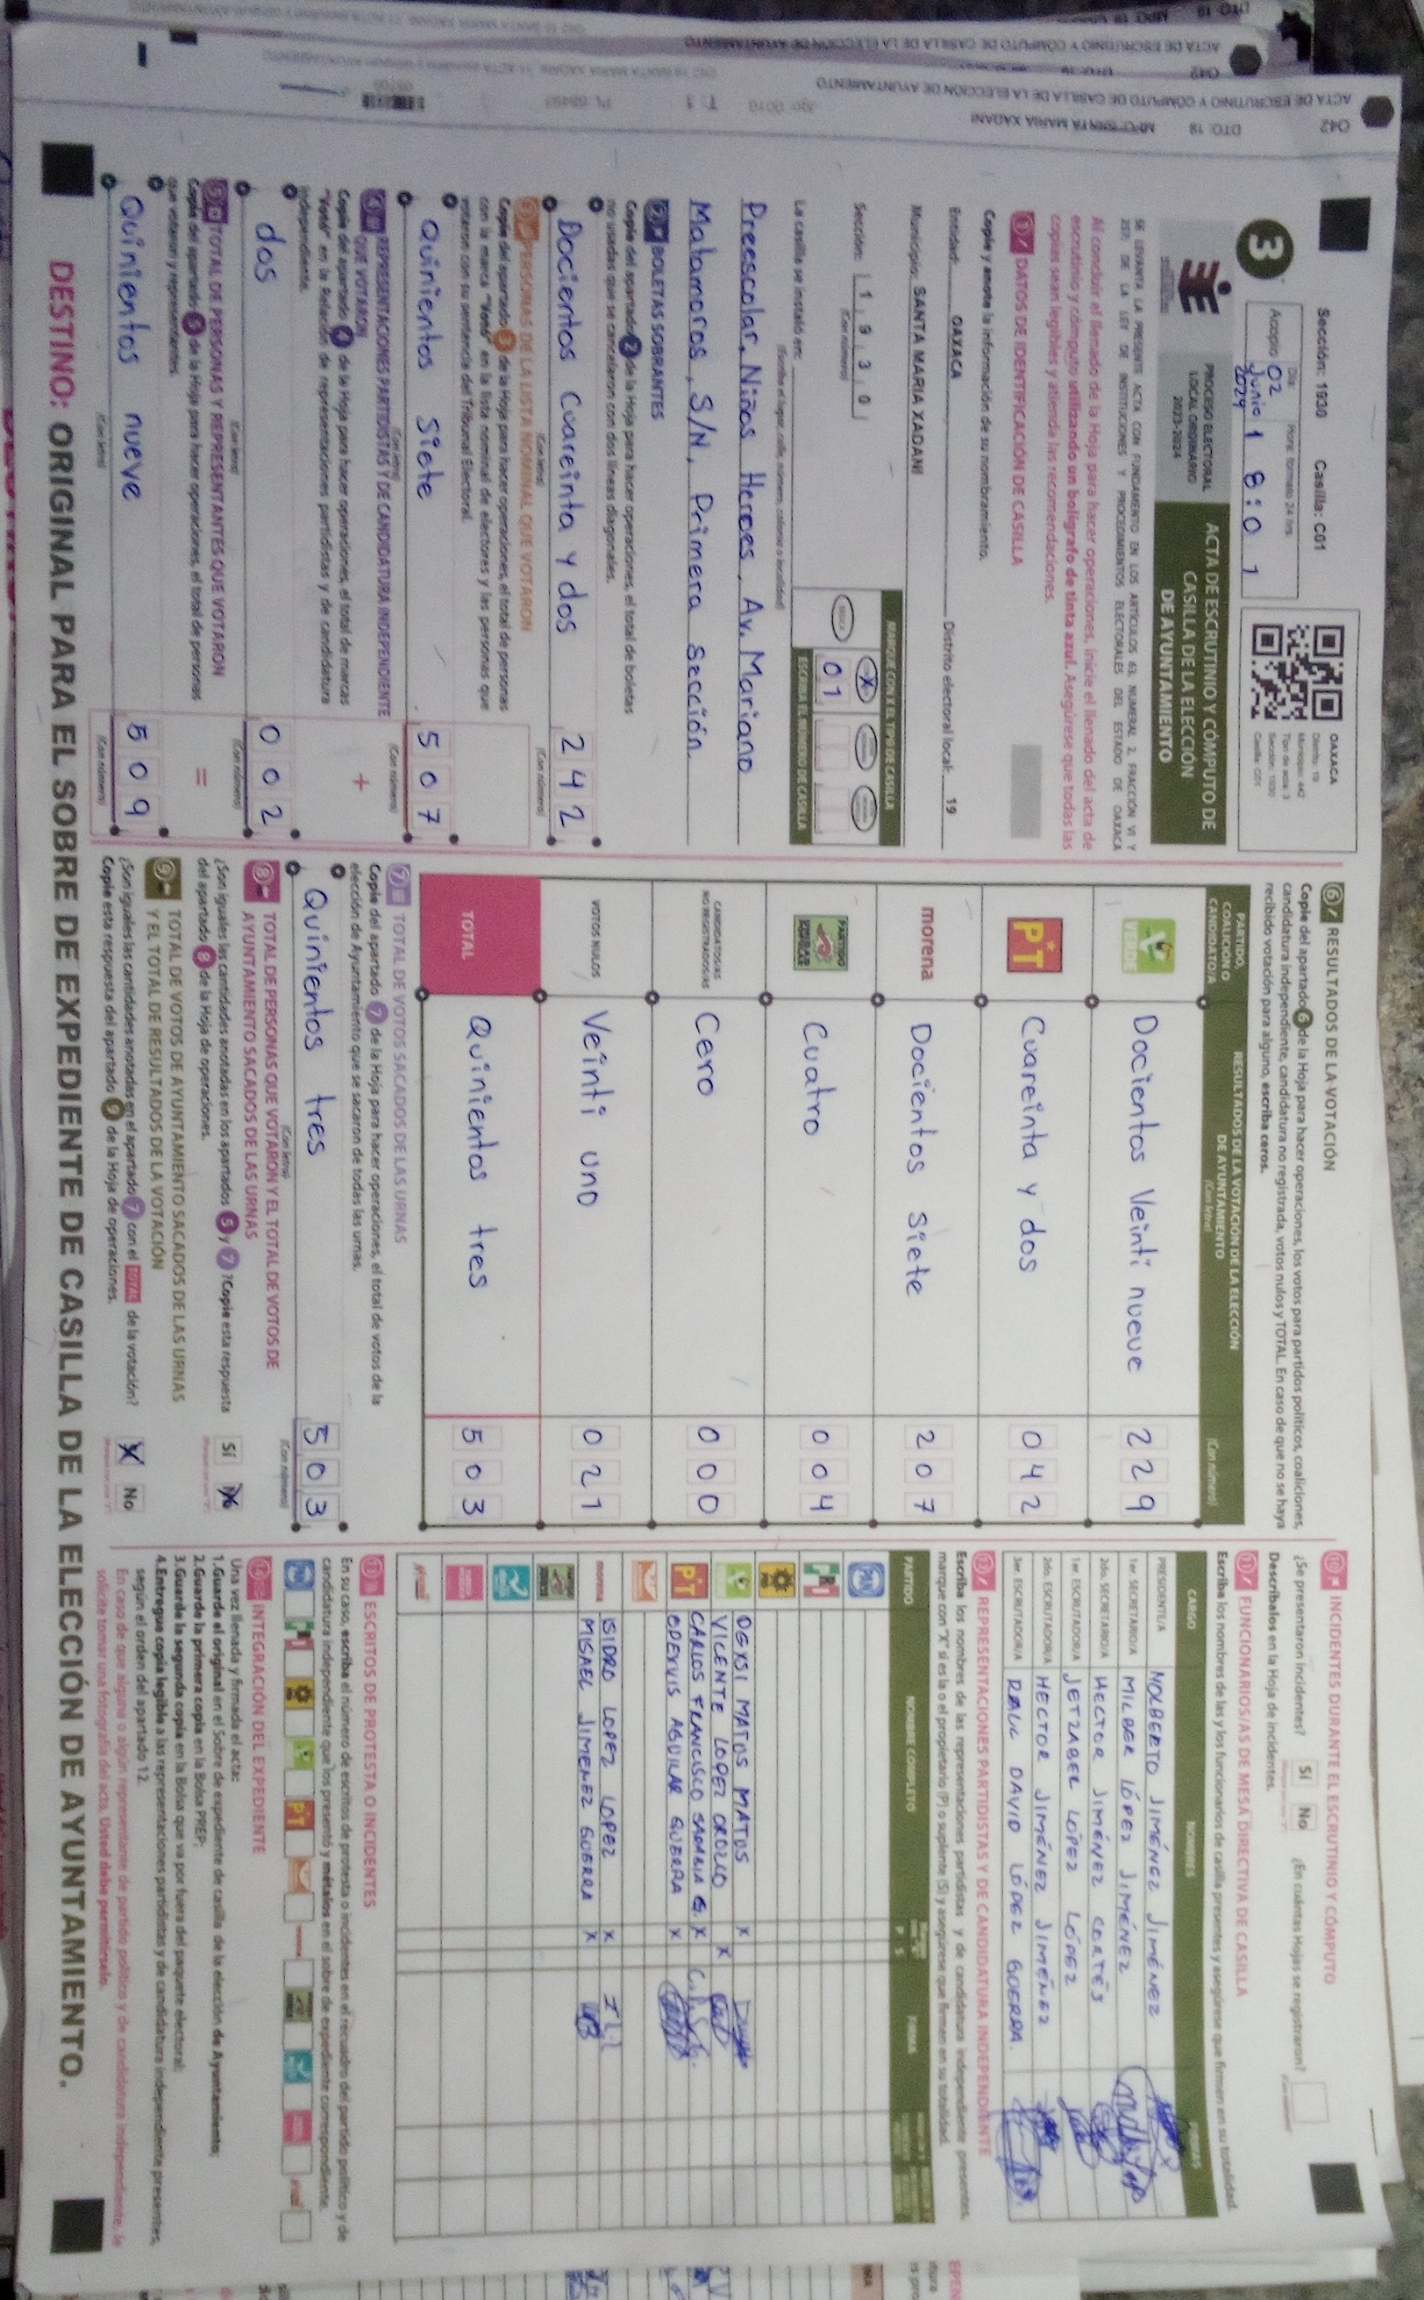 Sección: 1930 Casilla: C01
3
Acopio
Día: Hora: formato 24 hrs
02 Junio 2024 18:01
OAXACA
Distrito: 19
Municipio: 442
Tipo de acta: 3
Sección: 1930
Casilla: C01
PROCESO ELECTORAL
LOCAL ORDINARIO
2023-2024
ACTA DE ESCRUTINIO Y CÓMPUTO DE
CASILLA DE LA ELECCIÓN
DE AYUNTAMIENTO
SE LEVANTA LA PRESENTE ACTA CON FUNDAMENTO EN LOS ARTÍCULOS 63, NUMERAL 2, FRACCIÓN VI Y
237, DE LA LEY DE INSTITUCIONES Y PROCEDIMIENTOS ELECTORALES DEL ESTADO DE OAXACA
Al concluir el llenado de la Hoja para hacer operaciones, inicie el llenado del acta de
escrutinio y cómputo utilizando un bolígrafo de tinta azul. Asegúrese que todas las
copias sean legibles y atienda las recomendaciones.
1 DATOS DE IDENTIFICACIÓN DE CASILLA
Copie y anote la información de su nombramiento.
Entidad: OAXACA Distrito electoral local: 19
Municipio: SANTA MARIA XADANI
MARQUE CON X EL TIPO DE CASILLA
Sección: 1 9 3 0
(Con número)
X
01
ESCRIBA EL NÚMERO DE CASILLA
La casilla se instaló en:
(Escriba el lugar, calle, número, colonia o localidad)
Preescolar, Niños Heroes, Av. Mariano
Matamoros, S/N, Primera Sección.
2 BOLETAS SOBRANTES
Copie del apartado 2 de la Hoja para hacer operaciones, el total de boletas
no usadas que se cancelaron con dos líneas diagonales.
Docientos Cuareinta y dos 2 4 2
(Con letra) (Con número)
3 PERSONAS DE LA LISTA NOMINAL QUE VOTARON
Copie del apartado 3 de la Hoja para hacer operaciones, el total de personas
con la marca "Votó" en la lista nominal de electores y las personas que
votaron con su sentencia del Tribunal Electoral.
Quinientos Siete 5 0 7
(Con letra) (Con número)
4 REPRESENTACIONES PARTIDISTAS Y DE CANDIDATURA INDEPENDIENTE
QUE VOTARON
+
Copie del apartado 4 de la Hoja para hacer operaciones, el total de marcas
"Votó" en la Relación de representaciones partidistas y de candidatura
independiente.
dos 0 0 2
(Con letra) (Con número)
5 TOTAL DE PERSONAS Y REPRESENTANTES QUE VOTARON
=
Copie del apartado 5 de la Hoja para hacer operaciones, el total de personas
que votaron y representantes.
Quinientos nueve 5 0 9
(Con letra) (Con número)
6 RESULTADOS DE LA VOTACIÓN
Copie del apartado 6 de la Hoja para hacer operaciones, los votos para partidos políticos, coaliciones,
candidatura independiente, candidatura no registrada, votos nulos y TOTAL. En caso de que no se haya
recibido votación para alguno, escriba ceros.
PARTIDO,
COALICIÓN O
CANDIDATO/A
RESULTADOS DE LA VOTACIÓN DE LA ELECCIÓN
DE AYUNTAMIENTO
(Con letra)
(Con número)
VERDE Docientos Veinti nueve 2 2 9
PT Cuareinta y dos 0 4 2
morena Docientos Siete 2 0 7
PARTIDO UNIDAD POPULAR Cuatro 0 0 4
CANDIDATOS/AS
NO REGISTRADOS/AS Cero 0 0 0
VOTOS NULOS Veinti uno 0 2 1
TOTAL Quinientos tres 5 0 3
7 TOTAL DE VOTOS SACADOS DE LAS URNAS
Copie del apartado 7 de la Hoja para hacer operaciones, el total de votos de la
elección de Ayuntamiento que se sacaron de todas las urnas.
Quinientos tres 5 0 3
(Con letra) (Con número)
8 TOTAL DE PERSONAS QUE VOTARON Y EL TOTAL DE VOTOS DE
AYUNTAMIENTO SACADOS DE LAS URNAS
¿Son iguales las cantidades anotadas en los apartados 5 y 7 ? Copie esta respuesta
del apartado 8 de la Hoja de operaciones.
Sí X
9 TOTAL DE VOTOS DE AYUNTAMIENTO SACADOS DE LAS URNAS
Y EL TOTAL DE RESULTADOS DE LA VOTACIÓN
¿Son iguales las cantidades anotadas en el apartado 7 con el TOTAL de la votación?
Copie esta respuesta del apartado 9 de la Hoja de operaciones.
X No
10 INCIDENTES DURANTE EL ESCRUTINIO Y CÓMPUTO
¿Se presentaron incidentes? Sí No ¿En cuántas Hojas se registraron?
Descríbalos en la Hoja de incidentes.
11 FUNCIONARIOS/AS DE MESA DIRECTIVA DE CASILLA
Escriba los nombres de las y los funcionarios de casilla presentes y asegúrese que firmen en su totalidad.
CARGO NOMBRES FIRMAS
PRESIDENTE/A NOLBERTO JIMÉNEZ JIMÉNEZ
1er. SECRETARIO/A MILBER LÓPEZ JIMÉNEZ
2do. SECRETARIO/A HECTOR JIMÉNEZ CORTÉS
1er. ESCRUTADOR/A JETZABEL LÓPEZ LÓPEZ
2do. ESCRUTADOR/A HECTOR JIMÉNEZ JIMÉNEZ
3er. ESCRUTADOR/A RAUL DAVID LÓPEZ GUERRA.
12 REPRESENTACIONES PARTIDISTAS Y DE CANDIDATURA INDEPENDIENTE
Escriba los nombres de las representaciones partidistas y de candidatura independiente presentes,
marque con "X" si es la o el propietario (P) o suplente (S) y asegúrese que firmen en su totalidad.
PARTIDO NOMBRE COMPLETO P S FIRMA
PAN
PRI
DEYSI MATUS MATUS X
VICENTE LOPEZ OROZCO X
PT CARLOS FRANCISCO SANABIA G. X
OPERVIS AGUILAR GUERRA X
morena ISIDRO LOPEZ LOPEZ X
MISAEL JIMENEZ GUERRA X
13 ESCRITOS DE PROTESTA O INCIDENTES
En su caso, escriba el número de escritos de protesta o incidentes en el recuadro del partido político y de
candidatura independiente que los presentó y métalos en el sobre de expediente correspondiente.
14 INTEGRACIÓN DEL EXPEDIENTE
Una vez llenada y firmada el acta:
1.Guarde el original en el Sobre de expediente de casilla de la elección de Ayuntamiento;
2.Guarde la primera copia en la Bolsa PREP;
3.Guarde la segunda copia en la Bolsa que va por fuera del paquete electoral;
4.Entregue copia legible a las representaciones partidistas y de candidatura independiente presentes,
según el orden del apartado 12.
En caso de que alguna o algún representante de partido político y de candidatura independiente, le
solicite tomar una fotografía del acta. Usted debe permitírselo.
DESTINO: ORIGINAL PARA EL SOBRE DE EXPEDIENTE DE CASILLA DE LA ELECCIÓN DE AYUNTAMIENTO.
ACTA DE ESCRUTINIO Y CÓMPUTO DE CASILLA DE LA ELECCIÓN DE AYUNTAMIENTO
042 DTO: 19 MPO: SANTA MARIA XADANI
ACTA DE ESCRUTINIO Y CÓMPUTO DE CASILLA DE LA ELECCIÓN DE AYUNTAMIENTO